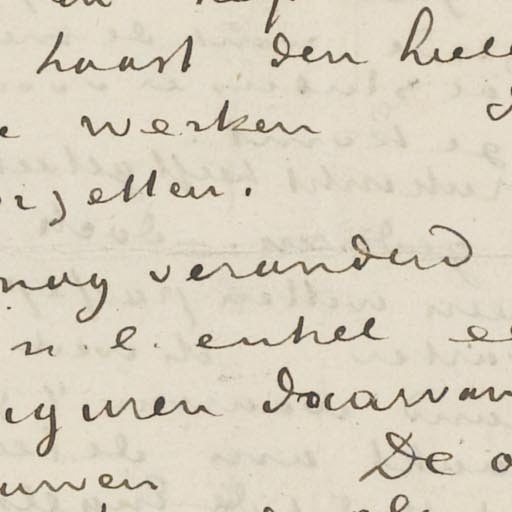 haast den heele
werken
zetten.
nog veranderd
n.l. enkel
iguren daarvan
De